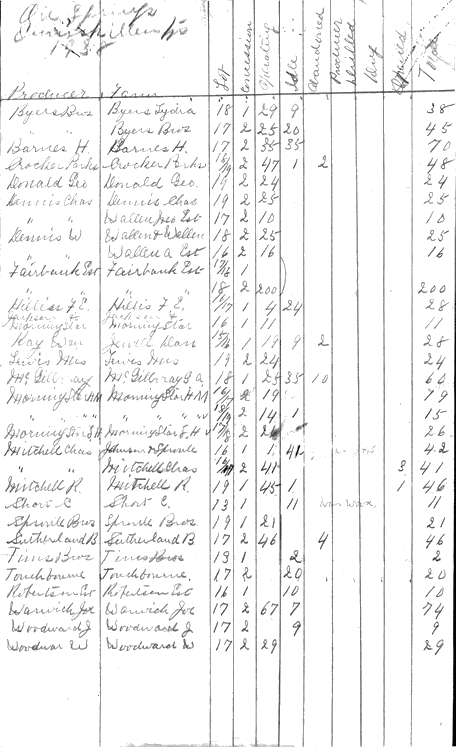 Oil Springs
Enniskillen Tp
Producer Farm Lot Concession Operating Idle Abandoned Producer Drilled Dry Total
Byers Bros Byers Lydia 18 1 29 9 38
" " Byers Bros 17 2 25 20 45
Barnes H. Barnes H. 17 2 35 35 70
Crocker Parks Crocker Parks 18/19 2 47 1 2 48
Donald Geo Donald Geo. 19 2 24 24
Dennis Chas Dennis Chas 19 2 25 25
" " Wallen Jno Est 17 2 10 10
Dennis W Wallen & Wallen 18 2 25 25
Wallen A Est 16 2 16 16
Fairbank Est Fairbank Est 17/16 1
18 2 200 200
Hillis F. E. Hillis F. E. 16/17 1 4 24 28
Jackson & Jackson &
Morningstar Morningstar 16 1 11 11
Kay Wm 1 19 9 2 28
Lewis Lewis 19 2 24 24
McGillvray McGillvray G A 18 1 25 35 10 60
Morningstar H M Morningstar H M 2 19 79
" " " " " " 18/19 2 14 1 15
Morningstar L H Morningstar L H 17/18 2 26
Mitchell Chas Johnson & Sproule 16 1 1 41 42
" " Mitchell Chas 2 41 3 41
Mitchell R. Mitchell R. 19 1 45 1 1 46
Short C Short C. 13 1 11 11
Sproule Bros Sproule Bros. 19 1 21 21
Sutherland B Sutherland B 17 2 46 4 46
Tims Bros Tims Bros 13 1 2 2
Touchbourne Touchbourne. 17 2 20 20
Robertson Est Robertson Est 16 1 10 10
Warwick Joe Warwick Joe 17 2 67 7 74
Woodward J Woodward J 17 2 9 9
Woodwar W Woodward W 17 2 29 29